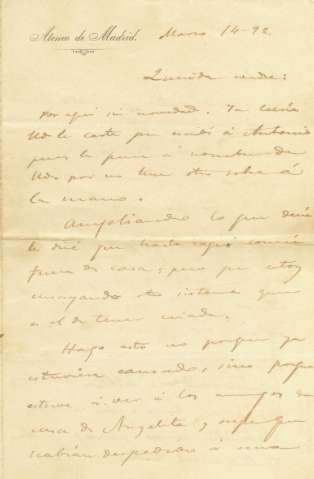 Ateneo de Madrid.
Marzo 14-92
Querida
Por aquí sin novedad. Ya
Vd. la carta que escribí á Antonio
pues la puse á nombre de
Vd. por no tener otro sobre á
la mano.
Ampliando lo que decía
le diré que hasta aquí comía
fuera de casa; pero que estoy
ensayando otro sistema que
es el de tener criada.
Hago esto no porque ya
estuviera cansado, sino porque
estuve á ver á los amigos de
casa de Angelita, y supe que
habían despedido á una